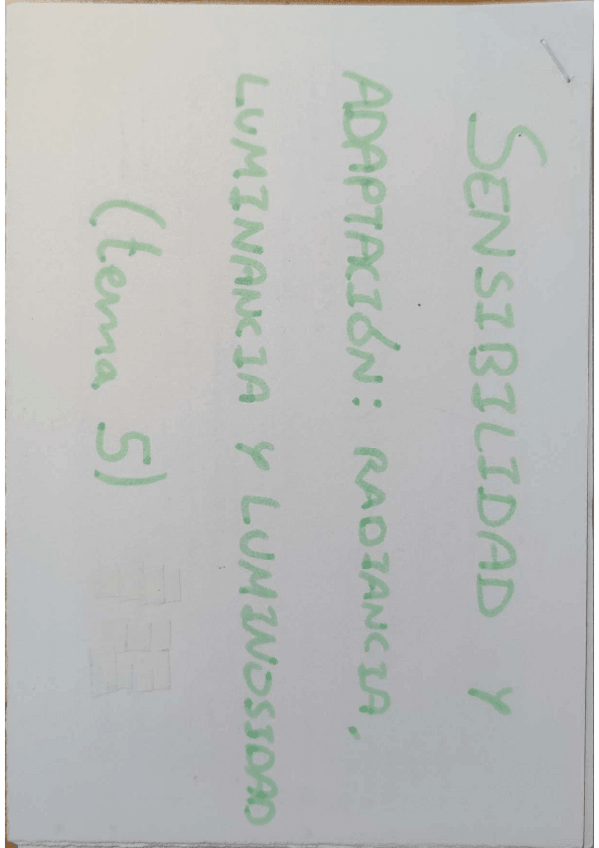 SENSIBILIDAD Y
ADAPTACIÓN: RADIANCIA,
LUMINANCIA Y LUMINOSIDAD
(tema 5)